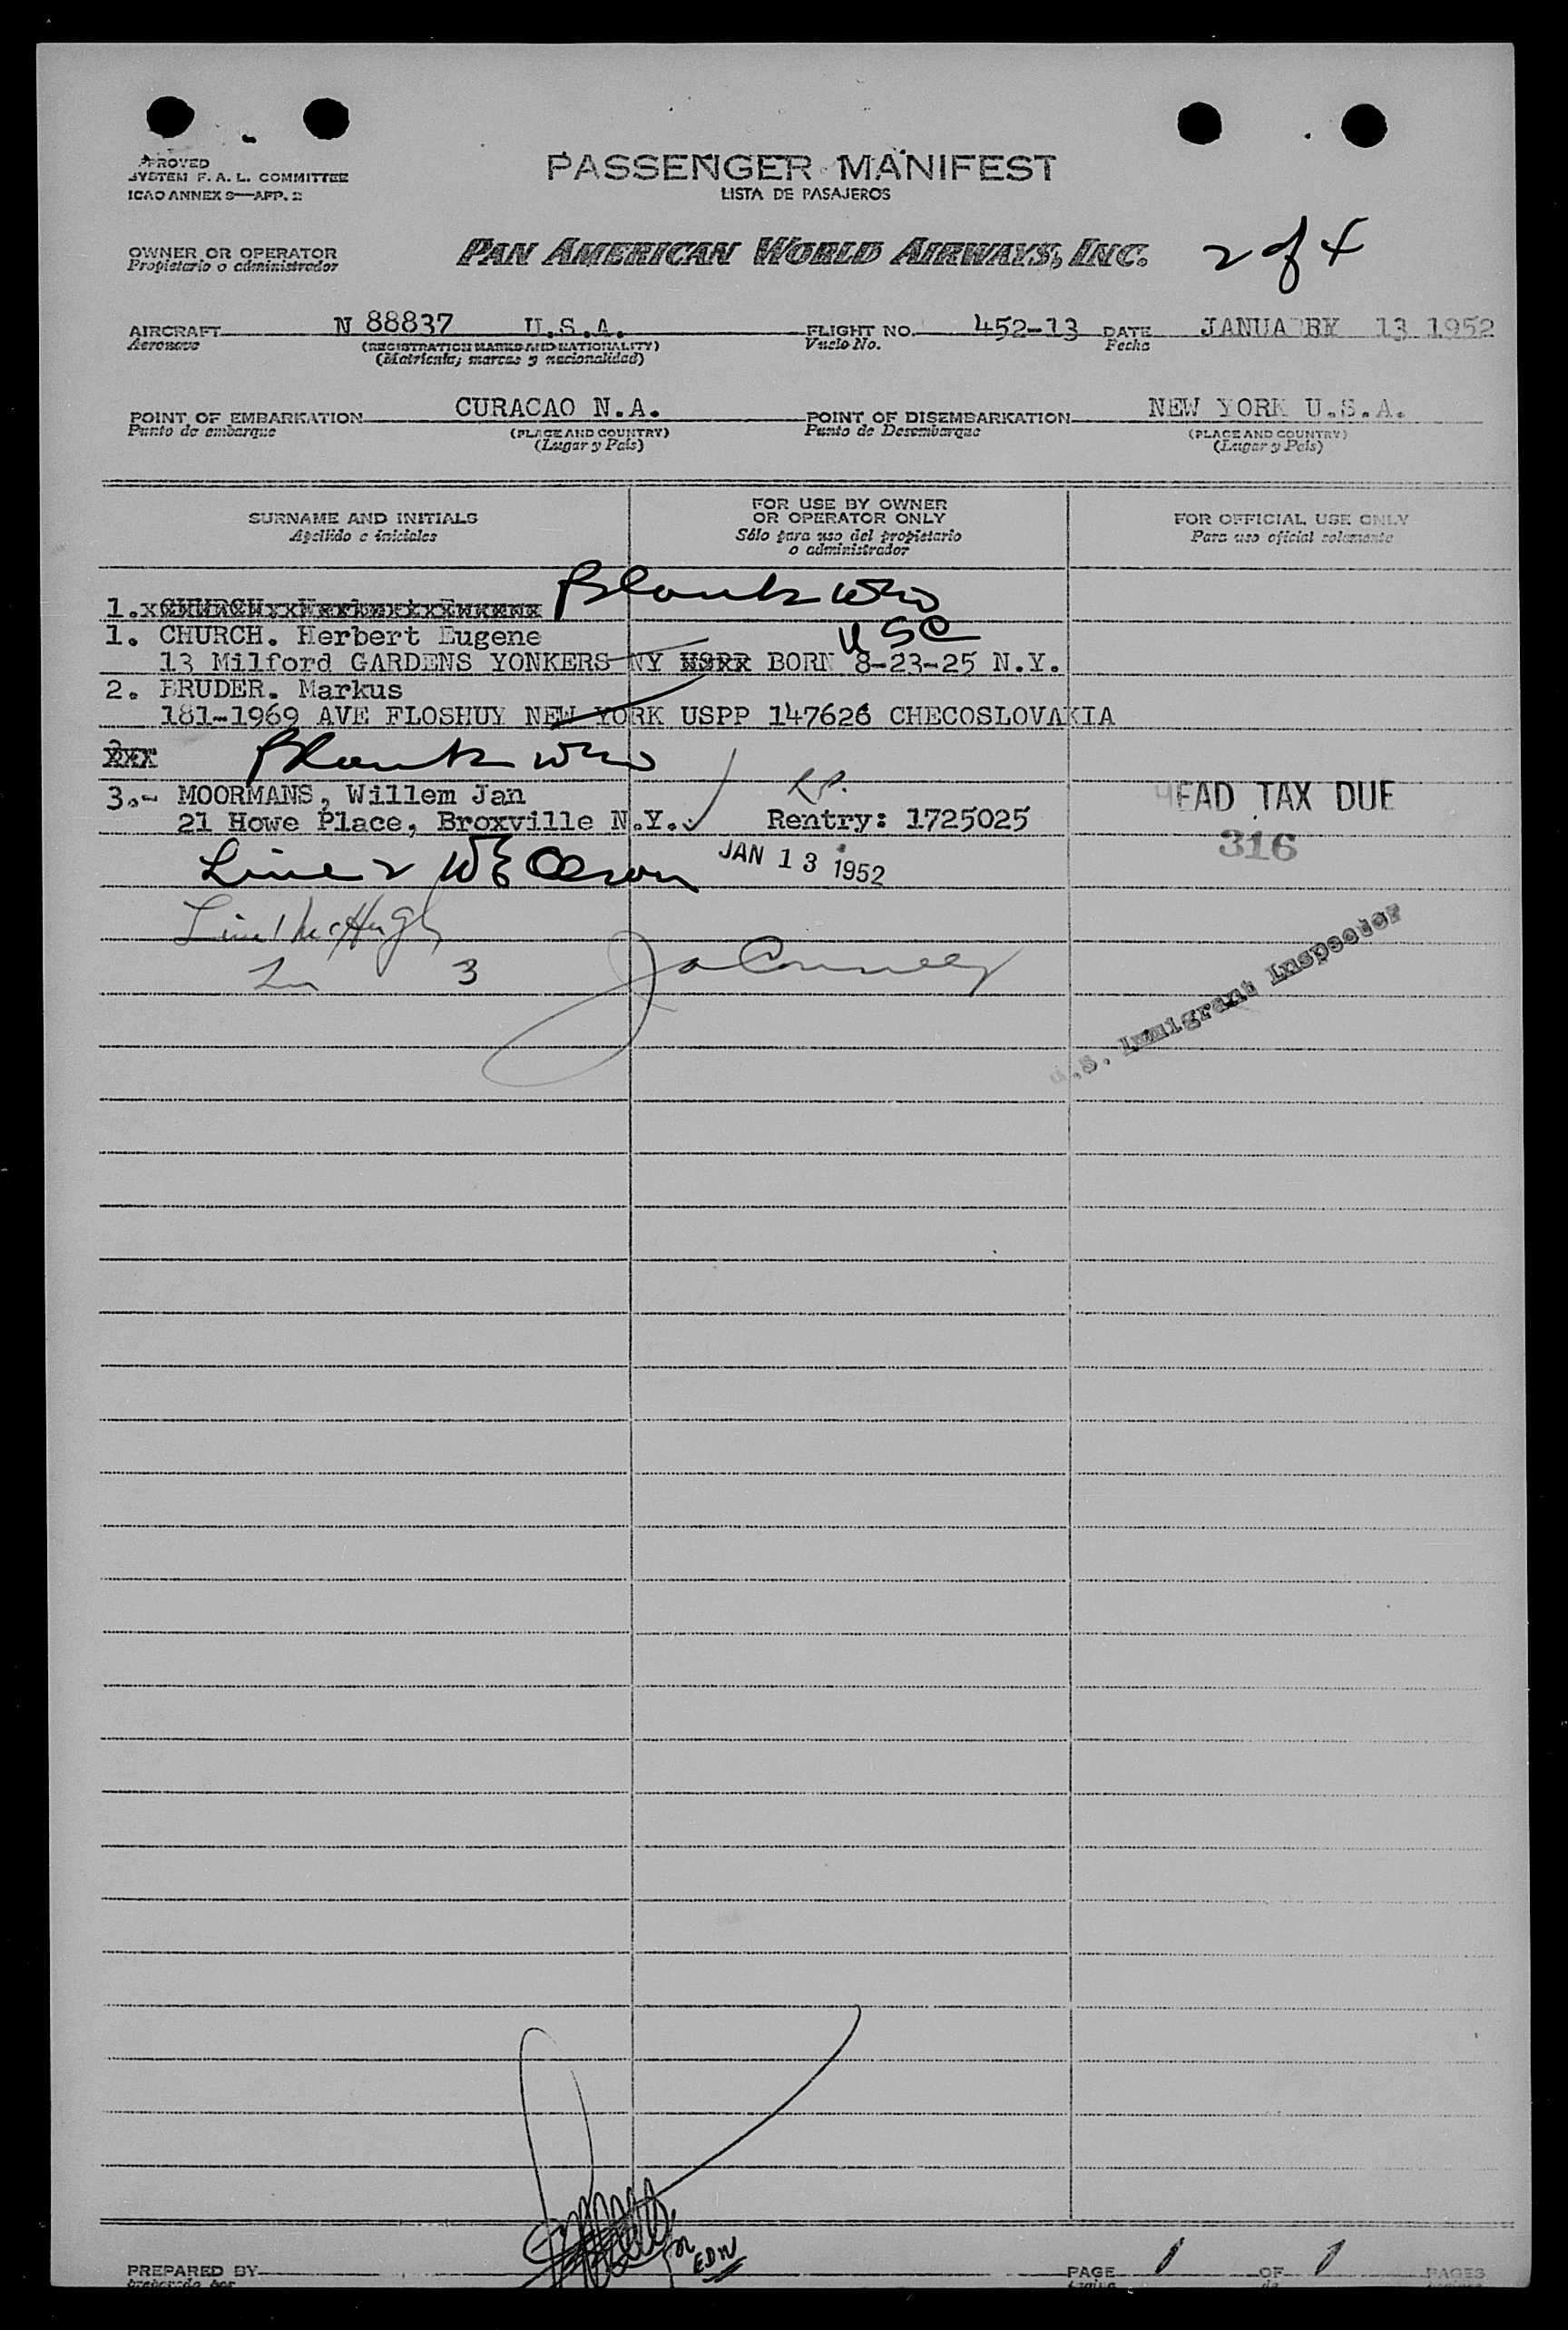 PROVED
SYSTEM F. A. L. COMMITTEE
ICAO ANNEX 9—APP. 2
PASSENGER MANIFEST
LISTA DE PASAJEROS
OWNER OR OPERATOR
Propietario o administrador
PAN AMERICAN WORLD AIRWAYS, INC.
2 of 4
AIRCRAFT N 88837 U.S.A. FLIGHT NO. 452-13 DATE JANUA RY 13 1952
Aeronave (REGISTRATION MARKS AND NATIONALITY) Vuelo No. Fecha
(Matricula, marcas y nacionalidad)
POINT OF EMBARKATION CURACAO N.A. POINT OF DISEMBARKATION NEW YORK U.S.A.
Punto de embarque (PLACE AND COUNTRY) Punto de Desembarque (PLACE AND COUNTRY)
(Lugar y País) (Lugar y País)
SURNAME AND INITIALS
Apellido e iniciales
FOR USE BY OWNER
OR OPERATOR ONLY
Sólo para uso del propietario
o administrador
FOR OFFICIAL USE ONLY
Para uso oficial solamente
1. CHURCH Herbert Eugene Blank
1. CHURCH. Herbert Eugene USC
13 Milford GARDENS YONKERS NY BORN 8-23-25 N.Y.
2. BRUDER. Markus
181-1969 AVE FLOSHUY NEW YORK USPP 147626 CHECOSLOVAKIA
Blank
3.- MOORMANS, Willem Jan
21 Howe Place, Broxville N.Y. Rentry: 1725025
HEAD TAX DUE
316
Line 2 W E Olson
JAN 13 1952
Line 1 McHugh
Ln 3
U.S. Immigrant Inspector
for EDW
PREPARED BY PAGE 1 OF 1 PAGES